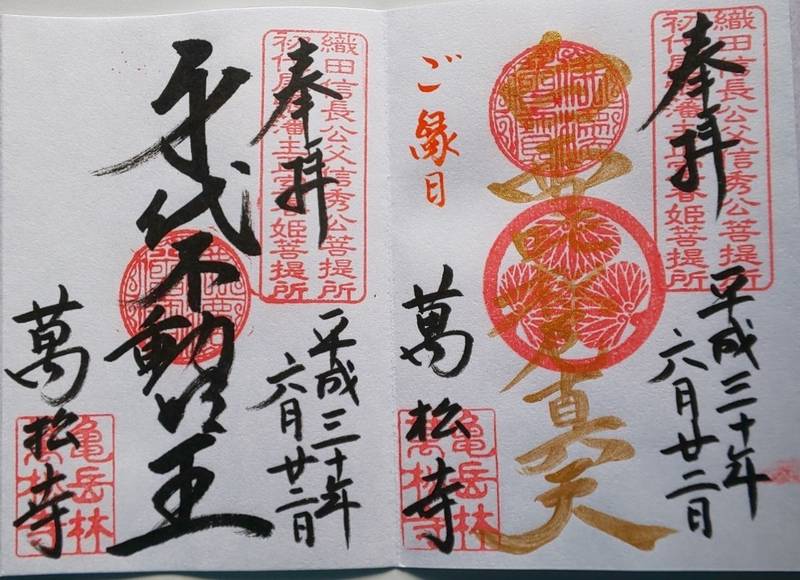 織田信長公父信秀公菩提所
初代尾張藩主正室春姫菩提所
奉拝
平成三十年
六月廿二日
真天
ご縁日
萬松寺
亀岳林
萬松寺
織田信長公父信秀公菩提所
初代尾張藩主正室春姫菩提所
奉拝
平成三十年
六月廿二日
身代不動明王
萬松寺
亀岳林
萬松寺